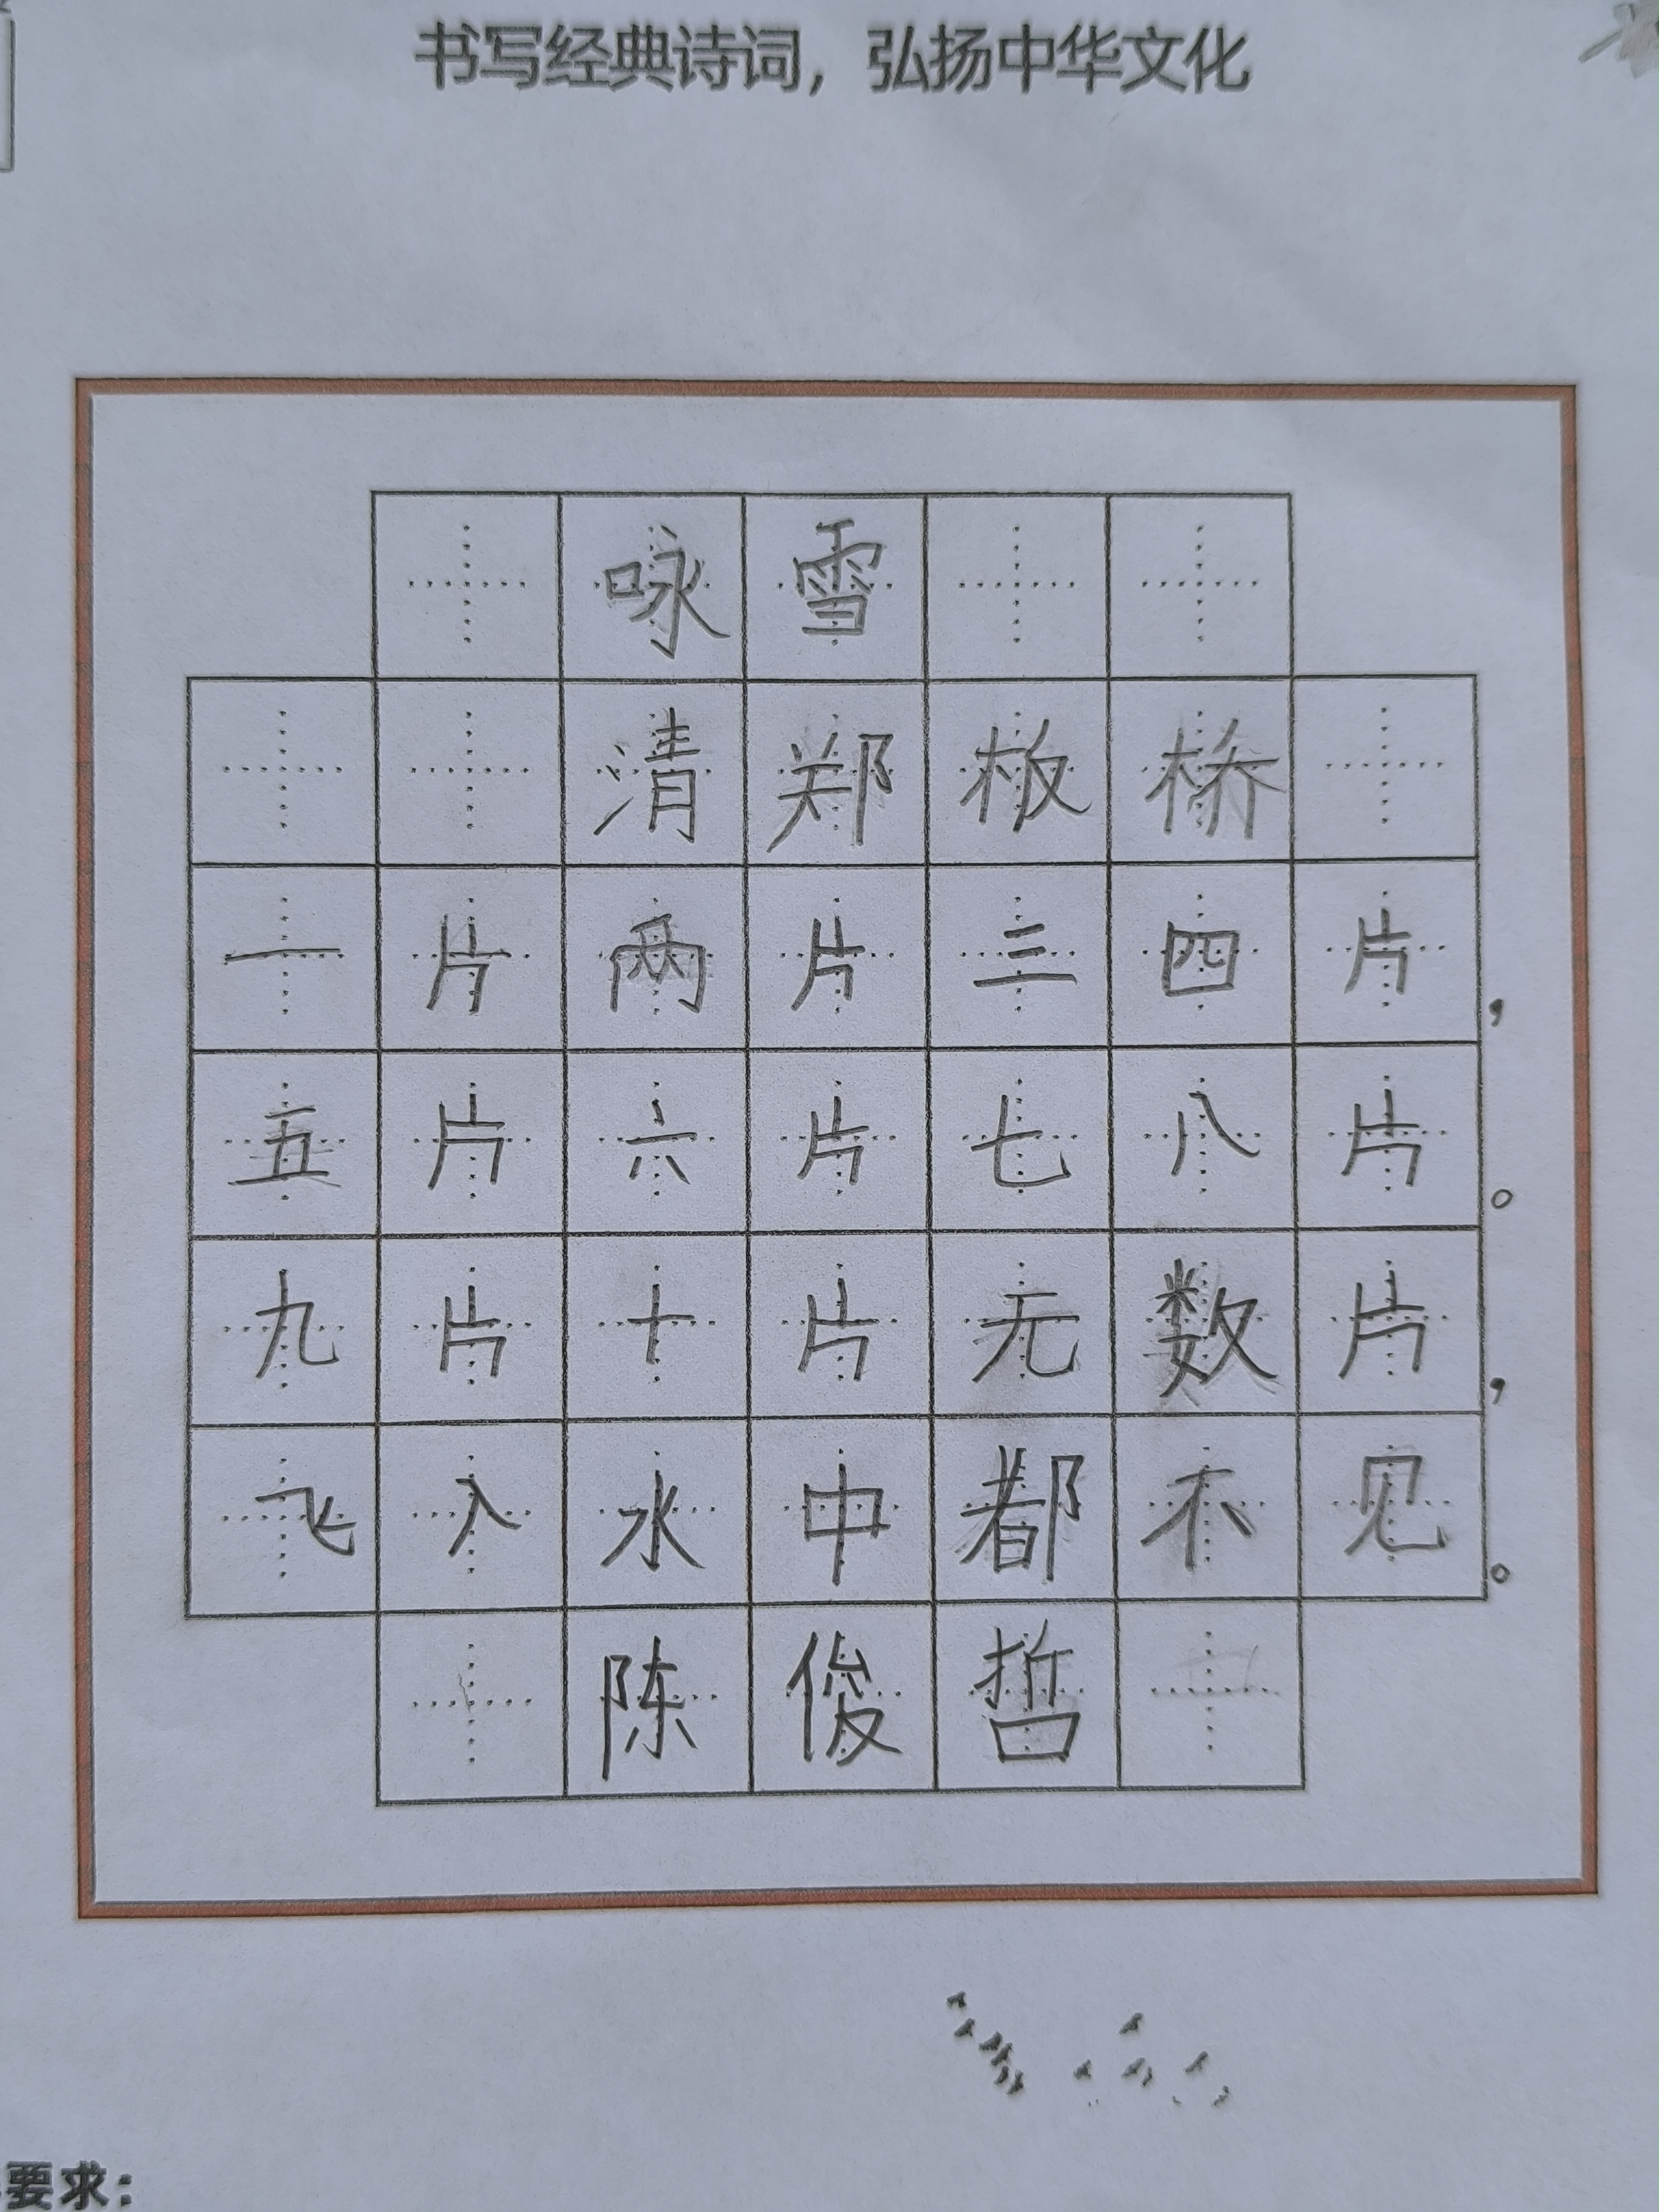 书写经典诗词，弘扬中华文化
咏雪
清郑板桥
一片两片三四片，
五片六片七八片。
九片十片无数片，
飞入水中都不见。
陈俊哲
要求：